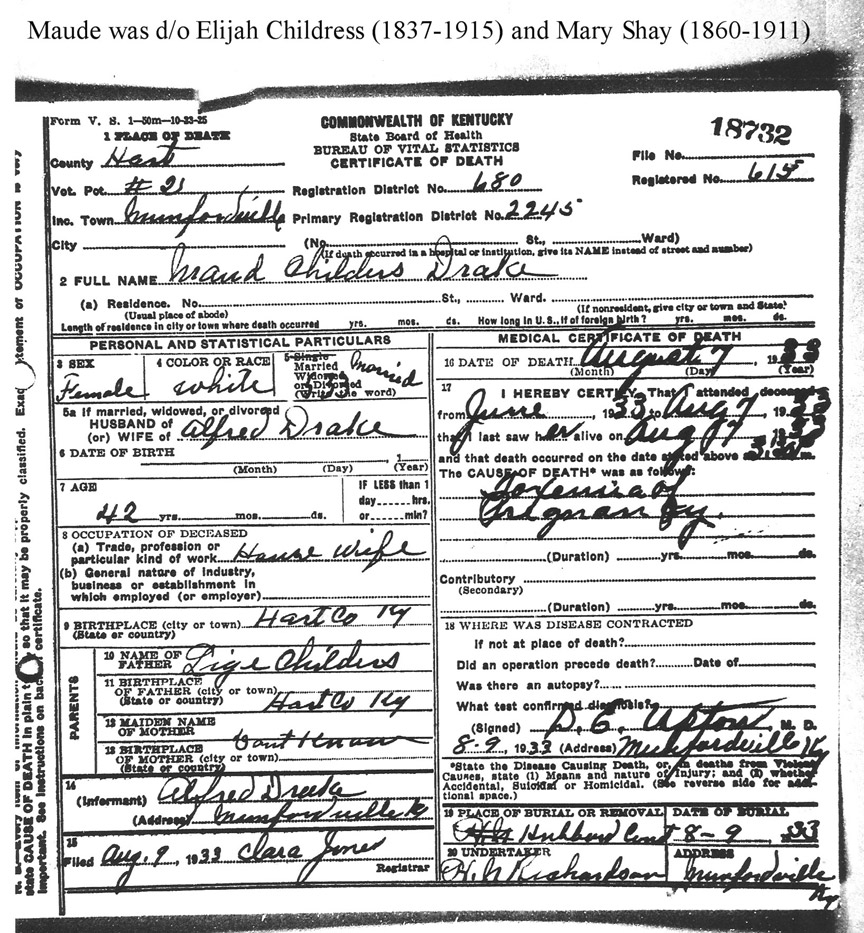 Maude was d/o Elijah Childress (1837-1915) and Mary Shay (1860-1911)
Form V. S. 1—50m—10-23-25
COMMONWEALTH OF KENTUCKY
State Board of Health
BUREAU OF VITAL STATISTICS
CERTIFICATE OF DEATH
18732
File No.
Registered No. 615
1 PLACE OF DEATH
County Hart
Vot. Pct. # 21 Registration District No. 680
Inc. Town Munfordville Primary Registration District No. 2245
City (No. St., Ward)
(If death occurred in a hospital or institution, give its NAME instead of street and number)
2 FULL NAME Maud Childers Drake
(a) Residence. No. St., Ward.
(Usual place of abode) (If nonresident, give city or town and State)
Length of residence in city or town where death occurred yrs. mos. ds. How long in U.S., if of foreign birth? yrs. mos. ds.
PERSONAL AND STATISTICAL PARTICULARS
3 SEX 4 COLOR OR RACE 5 Single
Married
Widowed
or Divorced
(Write the word)
Female white Married
5a If married, widowed, or divorced
HUSBAND of
(or) WIFE of Alfred Drake
6 DATE OF BIRTH 1
(Month) (Day) (Year)
7 AGE IF LESS than 1
day hrs.
or min?
42 yrs. mos. ds.
8 OCCUPATION OF DECEASED
(a) Trade, profession or
particular kind of work House Wife
(b) General nature of industry,
business or establishment in
which employed (or employer)
9 BIRTHPLACE (city or town) Hart Co Ky
(State or country)
PARENTS
10 NAME OF
FATHER Lige Childers
11 BIRTHPLACE
OF FATHER (city or town)
(State or country) Hart Co Ky
12 MAIDEN NAME
OF MOTHER Dont Know
13 BIRTHPLACE
OF MOTHER (city or town)
(State or country)
14
(Informant) Alfred Drake
(Address) Munfordville K
15
Filed Aug. 9, 1933 Clara Jones
Registrar
MEDICAL CERTIFICATE OF DEATH
16 DATE OF DEATH August 7 1933
(Month) (Day) (Year)
17
I HEREBY CERTIFY, That I attended deceased
from June, 1933 to Aug 7, 1933
that I last saw her alive on Aug 7, 1933
and that death occurred on the date stated above at m.
The CAUSE OF DEATH* was as follows:
Toxemia of
Pregnancy.
(Duration) yrs. mos. ds.
Contributory
(Secondary)
(Duration) yrs. mos. ds.
18 WHERE WAS DISEASE CONTRACTED
If not at place of death?
Did an operation precede death? Date of
Was there an autopsy?
What test confirmed diagnosis?
(Signed) M. D.
8-9, 1933 (Address) Munfordville Ky
*State the Disease Causing Death, or, in deaths from Violent
Causes, state (1) Means and nature of Injury; and (2) whether
Accidental, Suicidal or Homicidal. (See reverse side for addi-
tional space.)
19 PLACE OF BURIAL OR REMOVAL DATE OF BURIAL
Hubbard 8-9 33
20 UNDERTAKER ADDRESS
H. N Richardson Munfordville
Ky
state CAUSE OF DEATH in plain so that it may be properly classified. Exact statement of OCCUPATION is very
important. See instructions on back certificate.